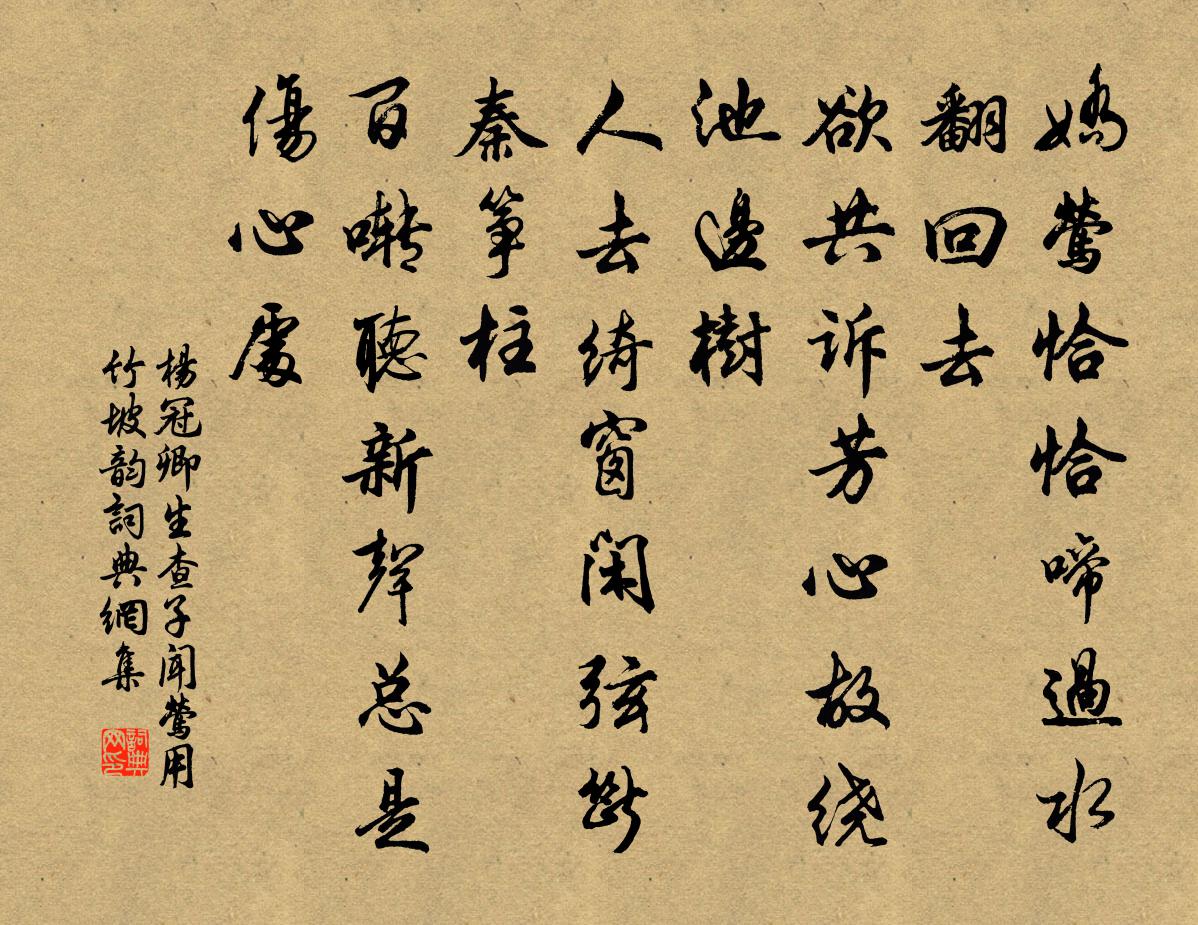 嬌鶯恰恰啼過水
翻回去
欲共诉芳心故绕
池邊樹
人去绮窗闲弦斷
秦筝柱
百囀聽新聲总是
傷心處
楊冠卿生查子闻鶯用
竹坡韵詞典網集
詞典
网印